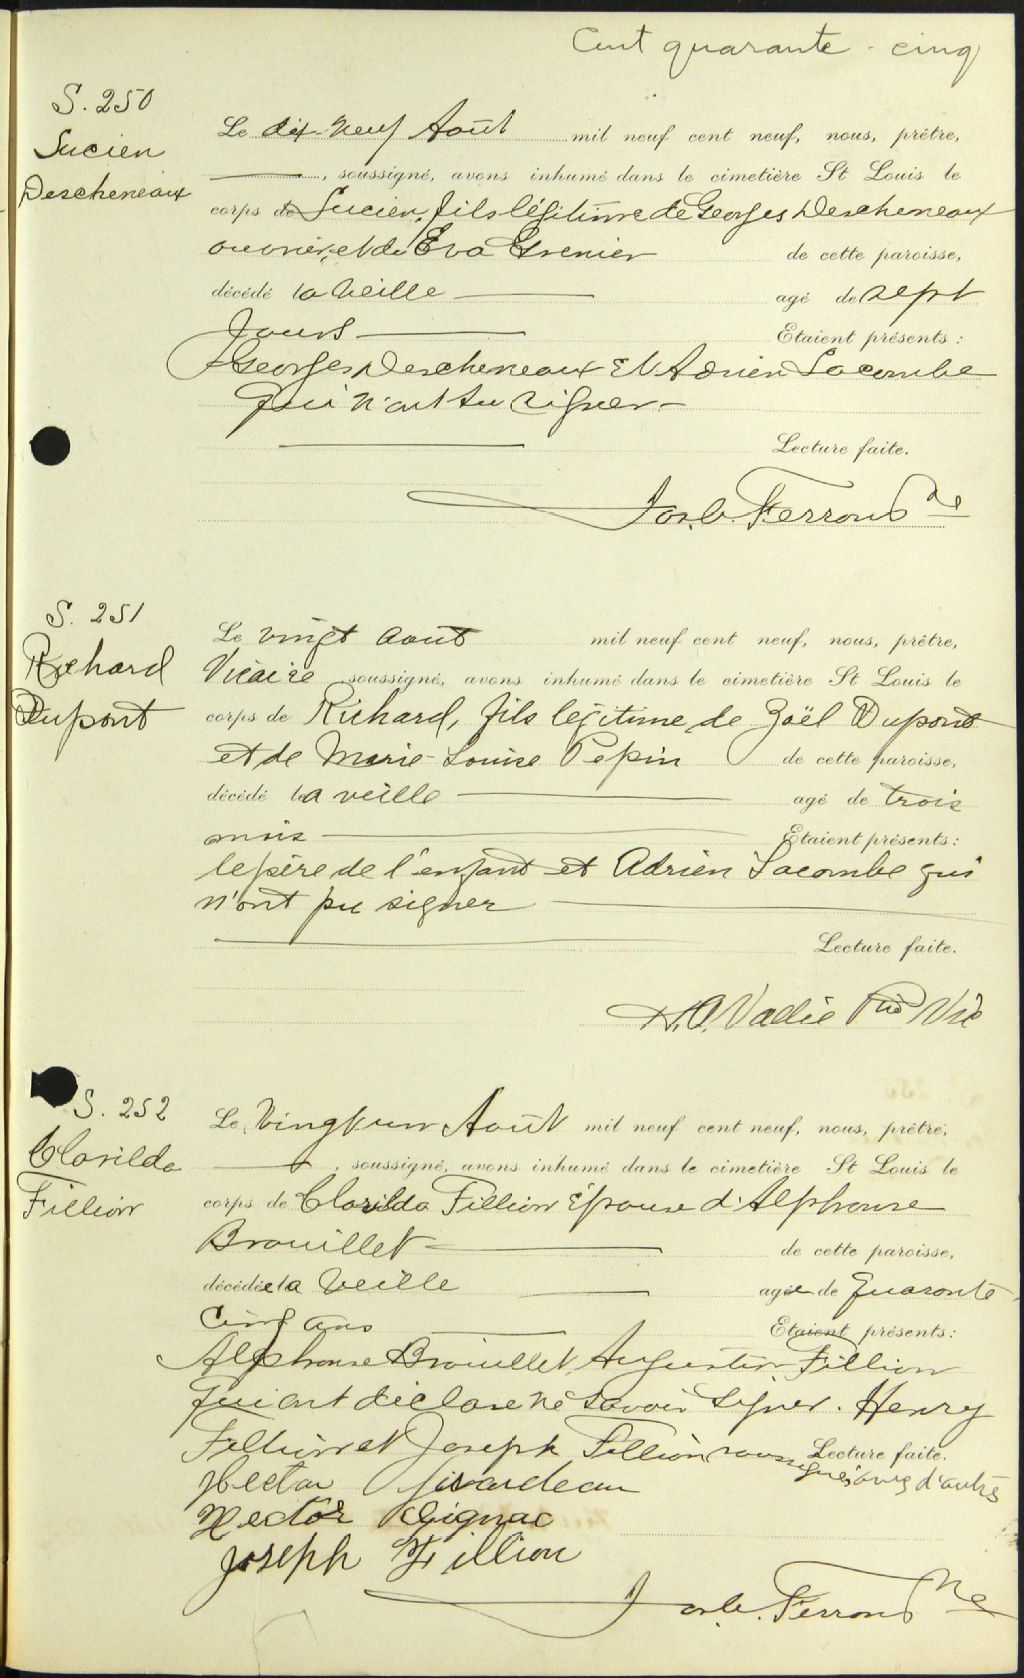 Cent quarante-cinq
S. 250
Lucien
Descheneaux
Le dix-neuf Août mil neuf cent neuf, nous, prêtre,
soussigné, avons inhumé dans le cimetière St Louis le
corps de Lucien, fils légitime de Georges Descheneaux
ouvrier, et de Eva Grenier de cette paroisse,
décédé la veille agé de sept
Jours Etaient présents:
Georges Descheneaux Et Adrien Lacombe
qui n'ont su signer
Lecture faite.
Jos. C. Ferron Ptre
S. 251
Richard
Dupont
Le vingt août mil neuf cent neuf, nous, prêtre,
Vicaire soussigné, avons inhumé dans le cimetière St Louis le
corps de Richard, fils légitime de Zoël Dupont
et de Marie-Louise Pepin de cette paroisse,
décédé la veille agé de trois
mois Etaient présents:
le père de l'enfant et Adrien Lacombe qui
n'ont pu signer
Lecture faite.
Vallée Ptre Vic
S. 252
Clorilda
Fillion
Le Vingt un Août mil neuf cent neuf, nous, prêtre,
soussigné, avons inhumé dans le cimetière St Louis le
corps de Clorilda Fillion Epouse d'Alphonse
Brouillet de cette paroisse,
décédée la Veille agée de quarante
Cinq ans Etaient présents:
Alphonse Brouillet, Augustin Fillion
qui ont déclaré ne savoir signer. Henry
Fillion et Joseph Fillion soussignés avec d'autres
Lecture faite.
Hector Girardeau
Hector Gignac
Joseph Fillion
Jos. C. Ferron Ptre